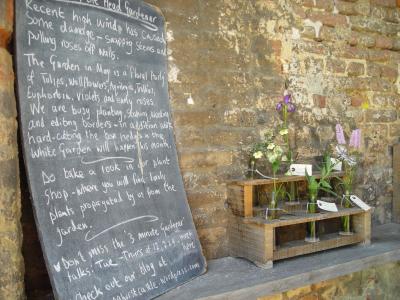 Head Gardener
Recent high winds has caused
some damage - snapping stems and
pulling roses off walls.
The Garden in May is a floral party
of Tulips, Wallflowers, Aquilegia, Thalictrum,
Euphorbia, Violets and early roses.
We are busy planting, staking, weeding
and editing borders - in addition work
hard-cutting the box hedges in the
White Garden will happen this month.
Do take a look in the plant
shop - where you will find lovely
plants propagated by us from the
garden.
Don't miss the 3 minute Gardener
talks: Tue - Thurs at 12, 2, 4.
Check out our blog at
wordpress.com